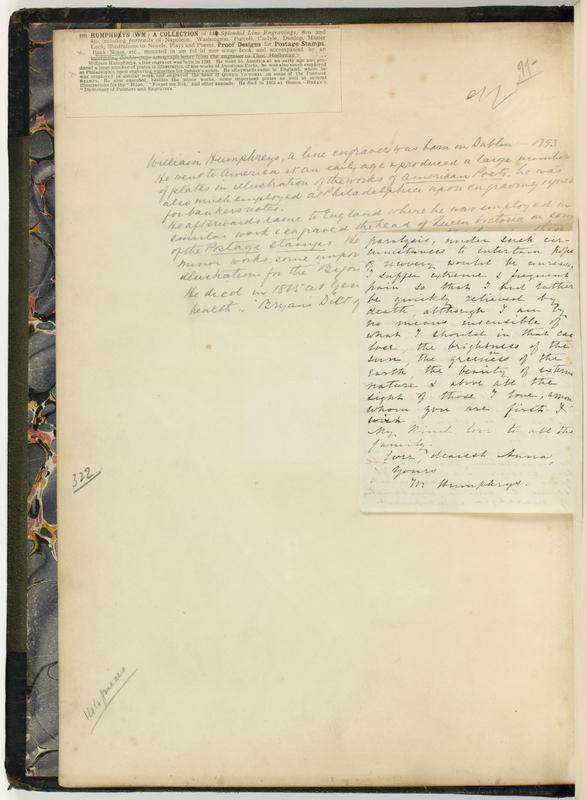 195 HUMPHREYS (WM.) A COLLECTION of 144 Splendid Line Engravings, 8vo and
4to, including portraits of Napoleon, Washington, Purcell, Carlyle, Dunlop, Master
Lock, illustrations to Novels, Plays and Poems, Proof Designs for Postage Stamps,
Bank Notes, etc., mounted in an fol hf mor scrap book, and accompanied by an
interesting double-page autograph letter from the engraver to Thos. Holloway
William Humphreys, a line engraver was born in 1793. He went to America at an early age and pro-
duced a large number of plates in illustration of the works of American Poets, he was also much employed
at Philadelphia upon engraving vignettes for banker's notes. He afterwards came to England, where he
was employed in similar work, and engraved the head of QUEEN VICTORIA on some of the POSTAGE
STAMPS. He also executed, besides the minor works, some important plates as well as several
illustrations for the "Bijou," "Forget me Not," and other annuals. He died in 1865 at Genoa.—BRYAN'S
"Dictionary of Painters and Engravers."
William Humphreys, a line engraver was born in Dublin 1793
He went to America at an early age & produced a large number
of plates in illustration of the works of American Poets, he was
also much employed at Philadelphia upon engraving
for bankers notes.
He afterwards came to England where he was employed in
similar work & engraved the head of Queen Victoria on some
of the Postage Stamps. He
minor works, some
illustration for the "Bijou
He died in 1865 at
health "Bryan's Dict of
paralysis, under such cir-
cumstances to entertain hope
of recovery would be useless,
I suffer extreme & frequent
pain so that I had rather
be quickly relieved by
death, although I am by
no means insensible of
what I should in that case
lose, the brightness of the
sun, the greeness of the
Earth, the beauty of
nature & above all the
sight of those I love, among
whom you are first. I
wish
My kind love to all the
family.
Ever, dearest Anna,
Yours
W. Humphrys.
322
144 pieces